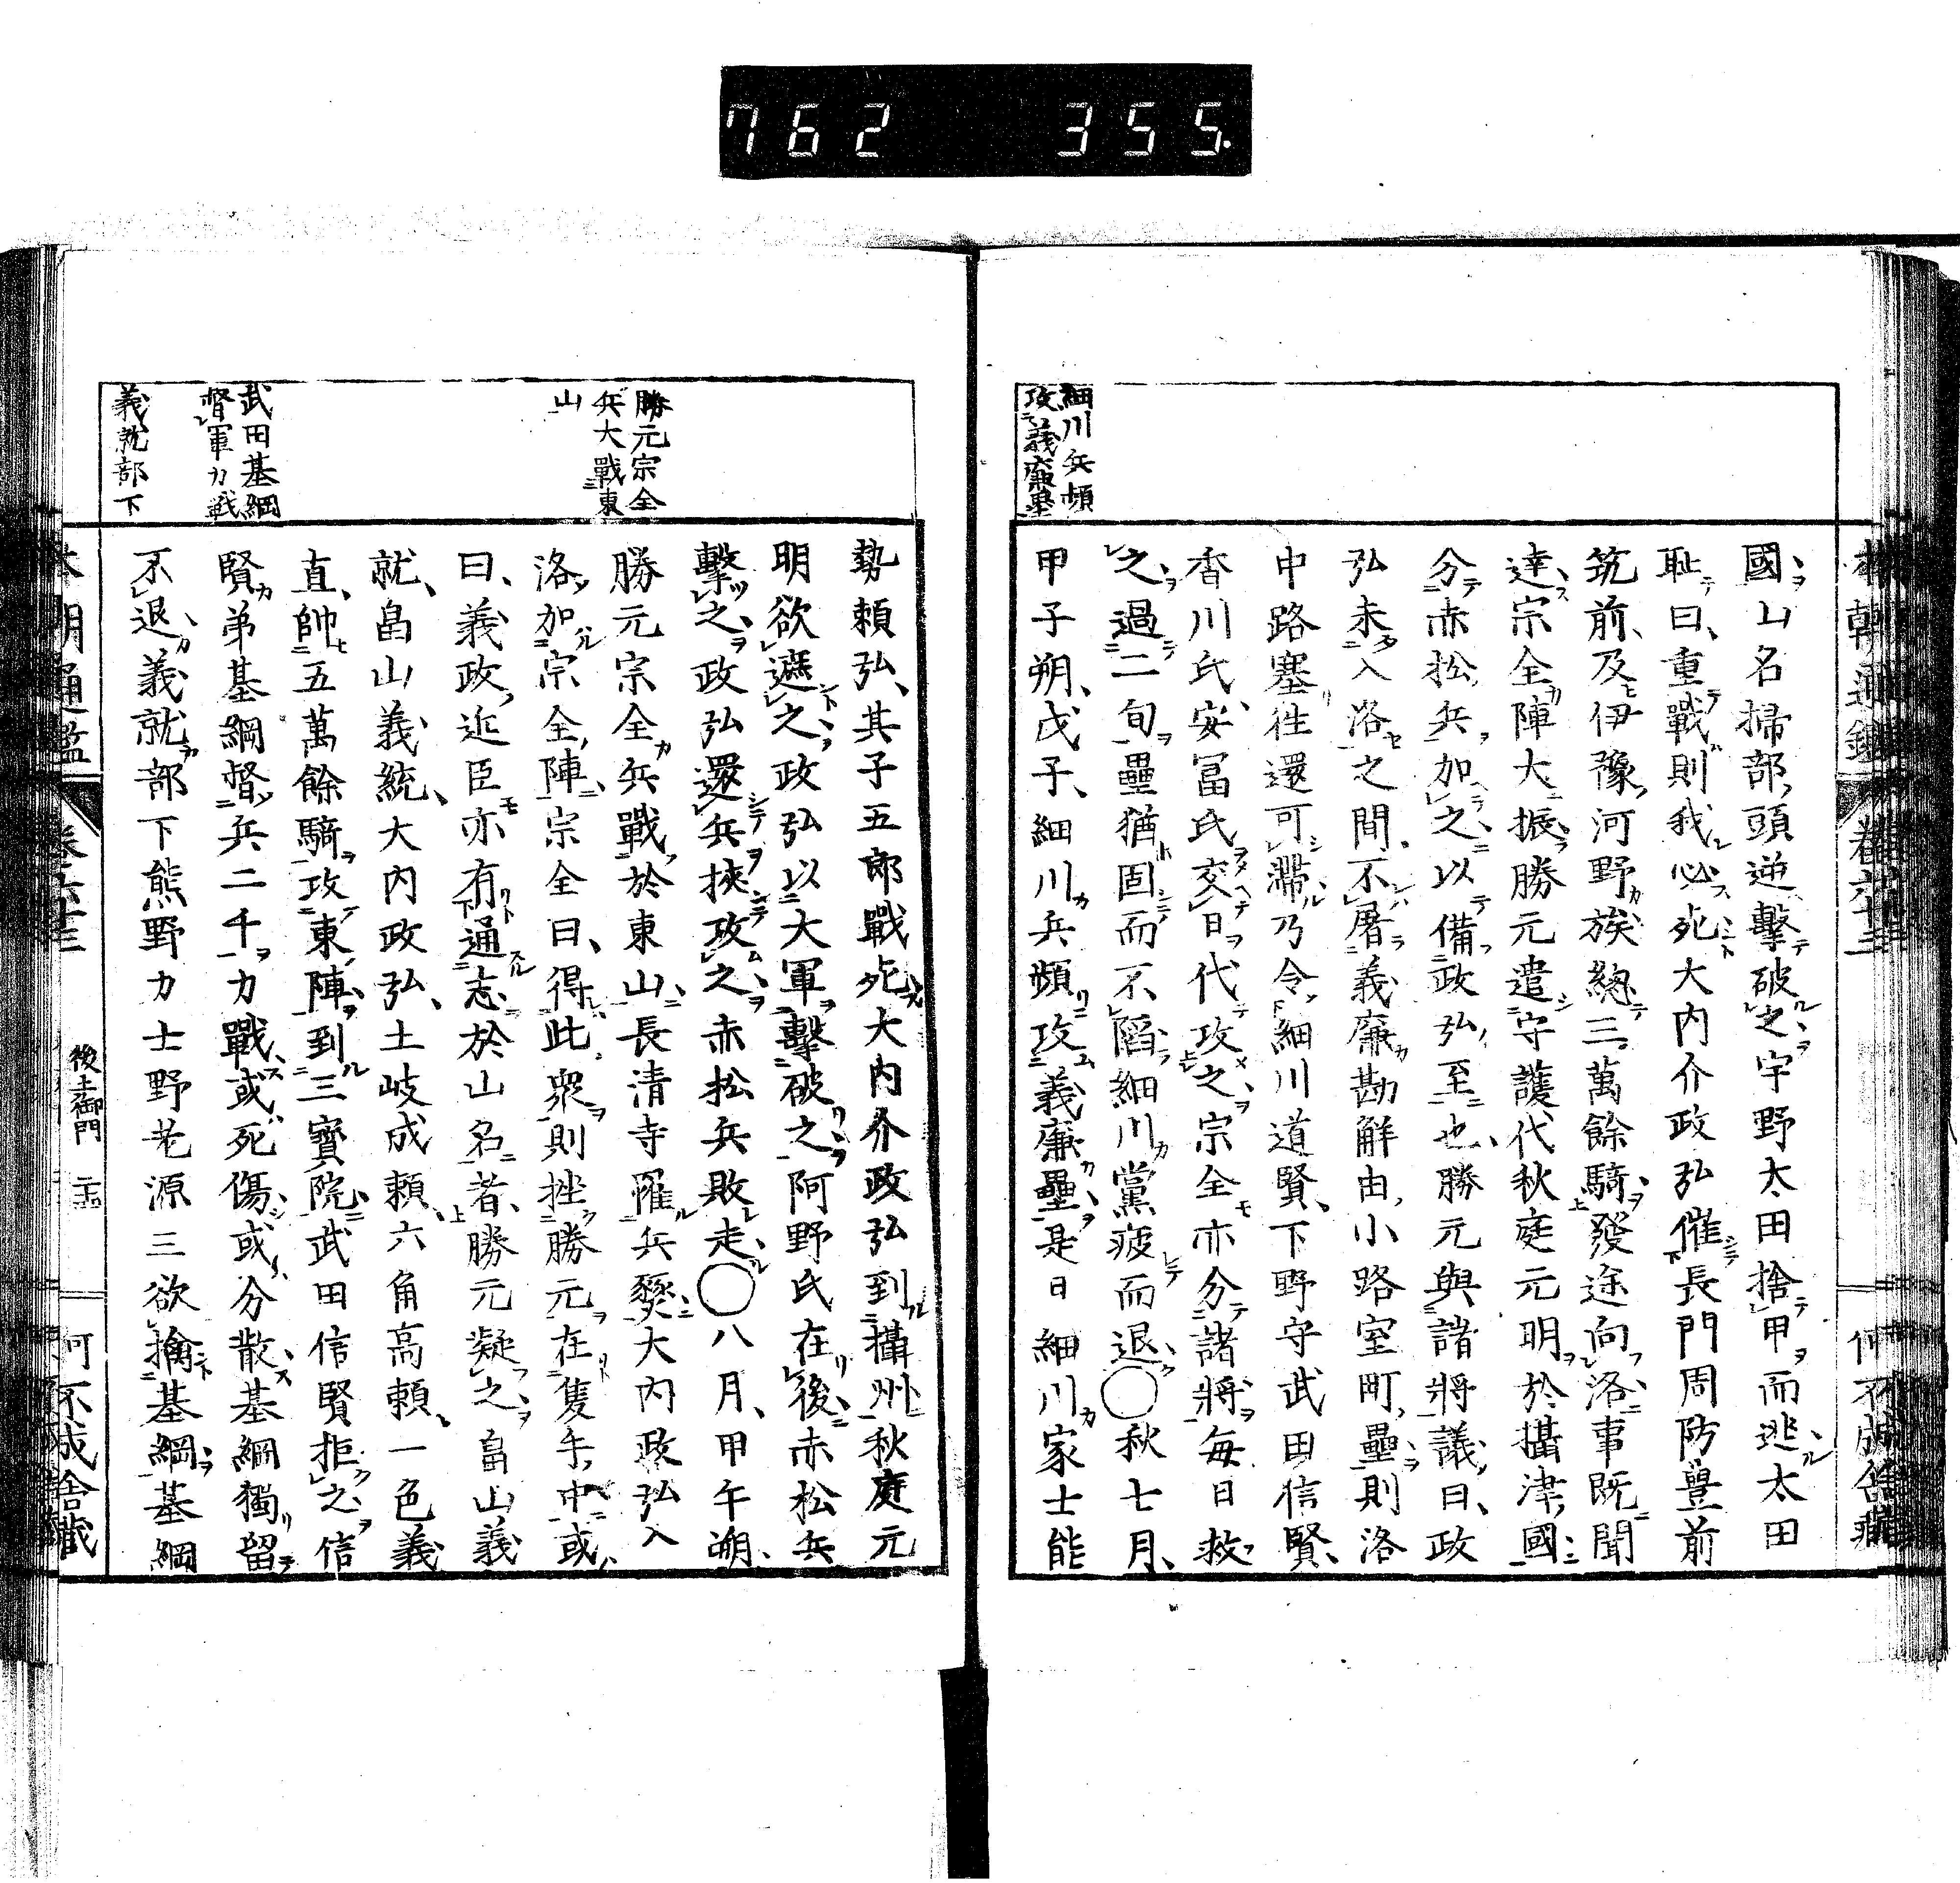 762 355.
細川兵頻
攻義廉壘
國山名掃部頭逆擊破之宇野太田捨甲而逃太田
耻曰重戰則我必死大内介政弘催長門周防豊前
筑前及伊豫河野族總三萬餘騎發途向洛事既聞
達宗全陣大振勝元遣守護代秋庭元明於攝津國
分赤松兵加之以備政弘至也勝元與諸將議曰政
弘未入洛之間不屠義廉勘解由小路室町壘則洛
中路塞徃還可滯乃令細川道賢下野守武田信賢
香川氏安冨氏交日代攻之宗全亦分諸將每日救
之過二旬壘猶固而不陷細川黨疲而退〇秋七月
甲子朔戊子細川兵頻攻義廉壘是日細川家士能
勝元宗全
兵大戰東
山
武田基綱
督軍力戰
義就部下
勢頼弘其子五郎戰死大内介政弘到攝州秋庭元
明欲遮之政弘以大軍擊破之阿野氏在後赤松兵
擊之政弘還兵挾攻之赤松兵敗走〇八月甲午朔
勝元宗全兵戰於東山長清寺罹兵燹大内政弘入
洛加宗全陣宗全曰得此衆則挫勝元在隻手中或
曰義政近臣亦有通志於山名者勝元疑之畠山義
就畠山義統大内政弘土岐成頼六角高頼一色義
直帥五萬餘騎攻東陣到三寳院武田信賢拒之信
賢弟基綱督兵二千力戰或死傷或分散基綱獨留
不退義就部下熊野力士野老源三欲擒基綱基綱
本朝通鑑 卷六十三 後土御門 何不成舎藏